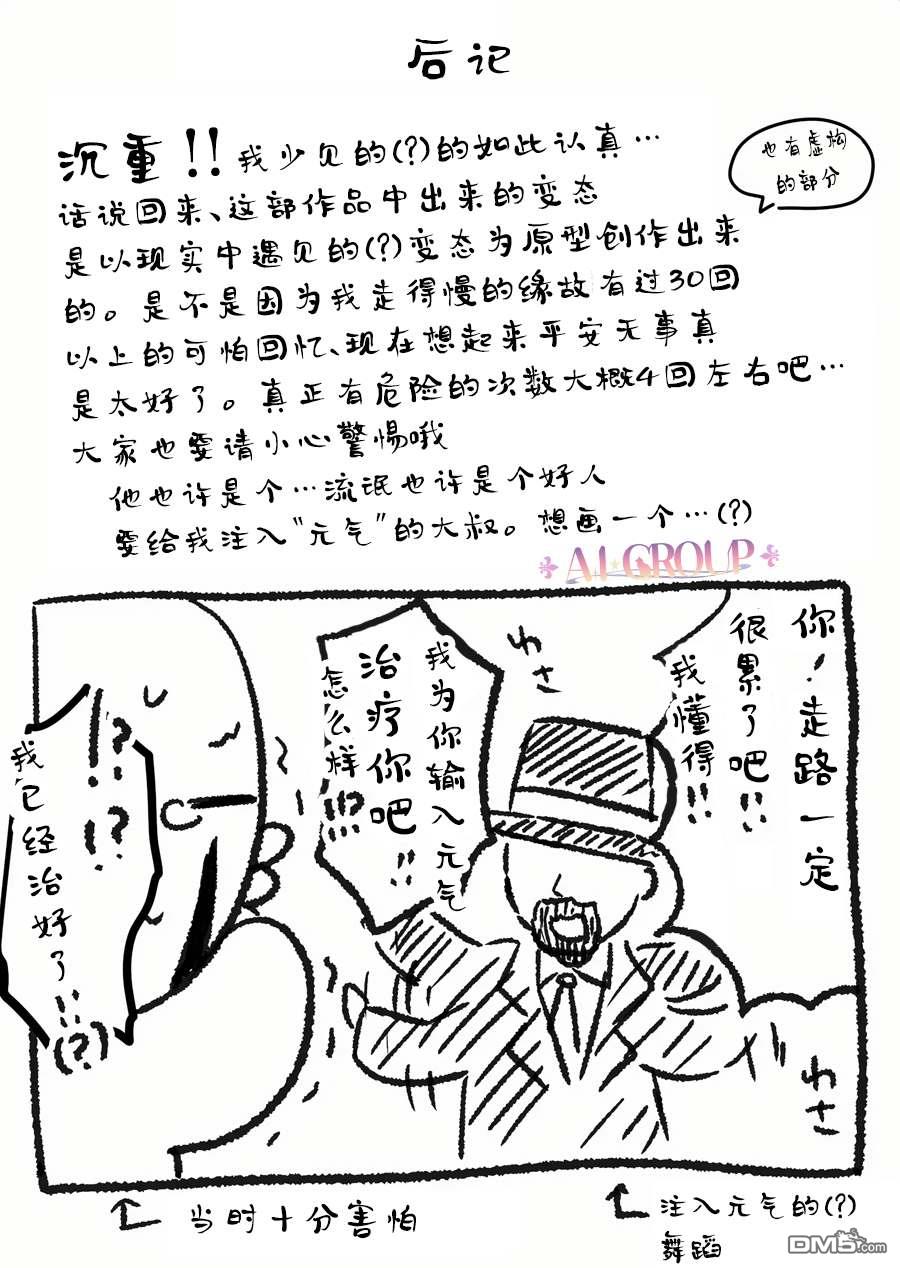 后记
沉重!!我少见的(?)的如此认真…
也有虚构
的部分
话说回来、这部作品中出来的变态
是以现实中遇见的(?)变态为原型创作出来
的。是不是因为我走得慢的缘故有过30回
以上的可怕回忆、现在想起来平安无事真
是太好了。真正有危险的次数大概4回左右吧…
大家也要请小心警惕哦
他也许是个…流氓也许是个好人
要给我注入“元气”的大叔。想画一个…(?)
A.I★GROUP
你!走路一定
很累了吧!!
我懂得!!
わさ
我为你输入元气
治疗你吧!!
怎么样!!!?
!!?
!?
我已经治好了!!(?)
わさ
当时十分害怕
注入元气的(?)
舞蹈
DM5.com